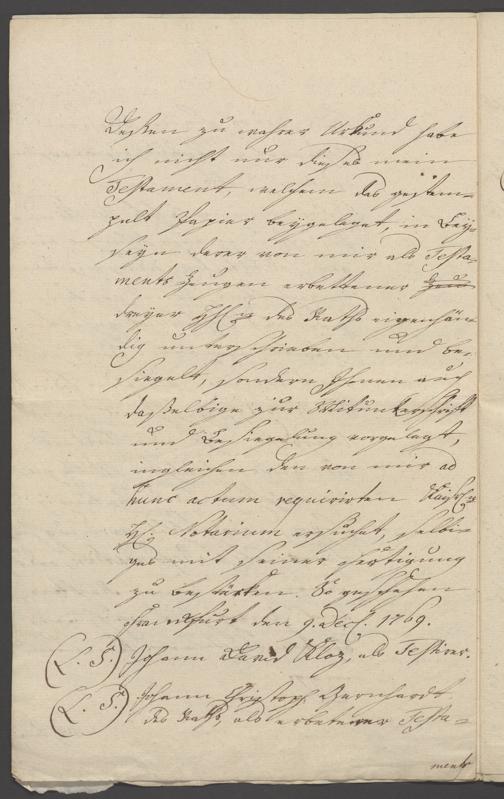 Dessen zu wahrer Urkund habe
ich nicht nur dieses mein
Testament, welchem das gestem-
pelt Papier beygeleget, in Bey-
seyn derer von mir als Testa-
ments Zeugen erbettener
dreyer des Raths eigenhän-
dig unterschrieben und be-
siegelt, sondern Ihnen auch
dasselbige zur Mitunterschrifft
und Besiegelung vorgelegt,
ingleichen den von mir ad
hunc actum requirirten Kayserl.
H. Notarium ersuchet, selbi-
ges mit seiner Fertigung
zu bestärken. So geschehen
Franckfurt den 9. Dec. 1769.
(L. S.) Johann David Kloz, als Testirer.
(L. S.) Johann Christoph Bernhardt
des Raths, als erbetener Testa-
ments